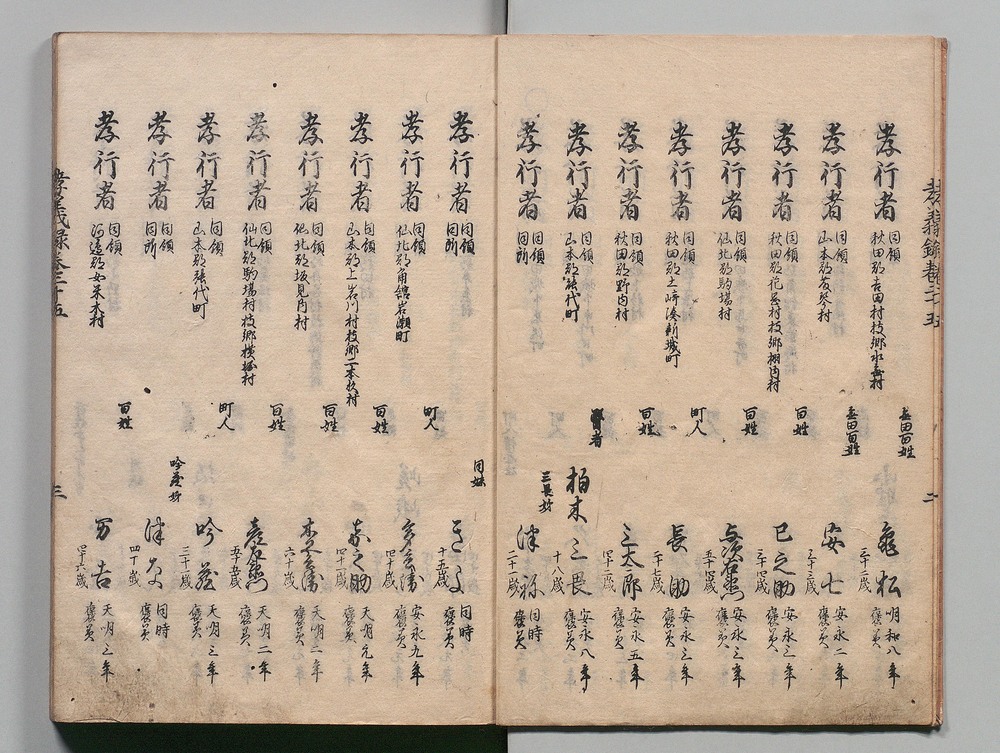 孝義録巻三十五
孝行者 同領 秋田郡吉田村枝郷水無村 無田百姓 亀松 三十二歳 明和八年 褒美
孝行者 同領 山本郡 無田百姓 安七 三十三歳 安永二年 褒美
孝行者 同領 秋田郡 百姓 巳之助 三十四歳 安永三年 褒美
孝行者 同領 仙北郡駒場村 百姓 与次右衛門 五十四歳 安永三年 褒美
孝行者 同領 秋田郡土崎湊新城町 町人 長助 三十七歳 安永三年 褒美
孝行者 同領 秋田郡野内村 百姓 三太郎 四十二歳 安永五年 褒美
孝行者 同領 山本郡能代町 柏木三畏 十八歳 安永八年 褒美
孝行者 同領 同所 三畏妹 津祢 二十歳 同時 褒美
孝行者 同領 同所 同妹 十五歳 同時 褒美
孝行者 同領 仙北郡角館岩瀬町 町人 多兵衛 四十歳 安永九年 褒美
孝行者 同領 山本郡上岩川村枝郷二本杉村 百姓 之助 四十歳 天明元年 褒美
孝行者 同領 仙北郡坂見内村 百姓 六十歳 天明二年 褒美
孝行者 同領 仙北郡駒場村枝郷横堀村 百姓 彦右衛門 五十五歳 天明二年 褒美
孝行者 同領 山本郡能代町 町人 吟蔵 三十二歳 天明三年 褒美
孝行者 同領 同所 吟蔵妹 四十歳 同時 褒美
孝行者 同領 河辺郡女米木村 百姓 万吉 四十六歳 天明三年 褒美
孝義録巻三十五
三